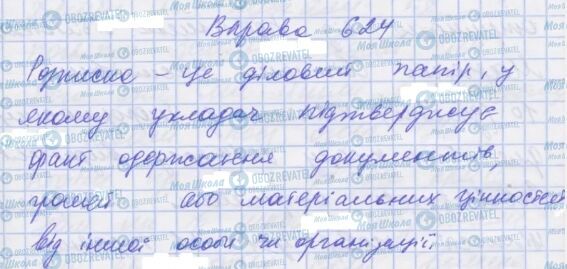 Вправа 624
Розписка – це діловий папір, у
якому укладач підтверджує
факт одержання документів,
грошей або матеріальних цінностей
від іншої особи чи організації.